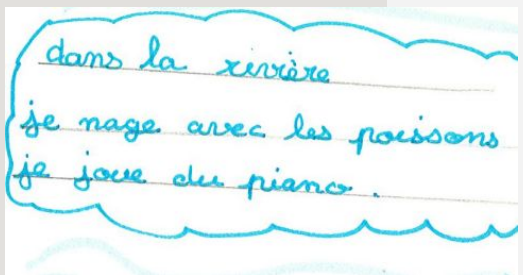 dans la rivière
je nage avec les poissons
je joue du piano .